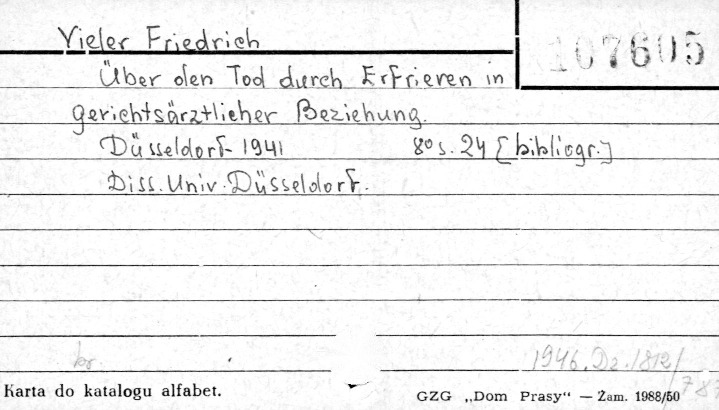 107605
Vieler Friedrich
Über den Tod durch Erfrieren in
gerichtsärztlicher Beziehung.
Düsseldorf 1941 8° s. 24 [bibliogr.]
Diss. Univ. Düsseldorf.
br.
1946. Dz. 1812/
787
Karta do katalogu alfabet.
GZG „Dom Prasy" — Zam. 1988/50